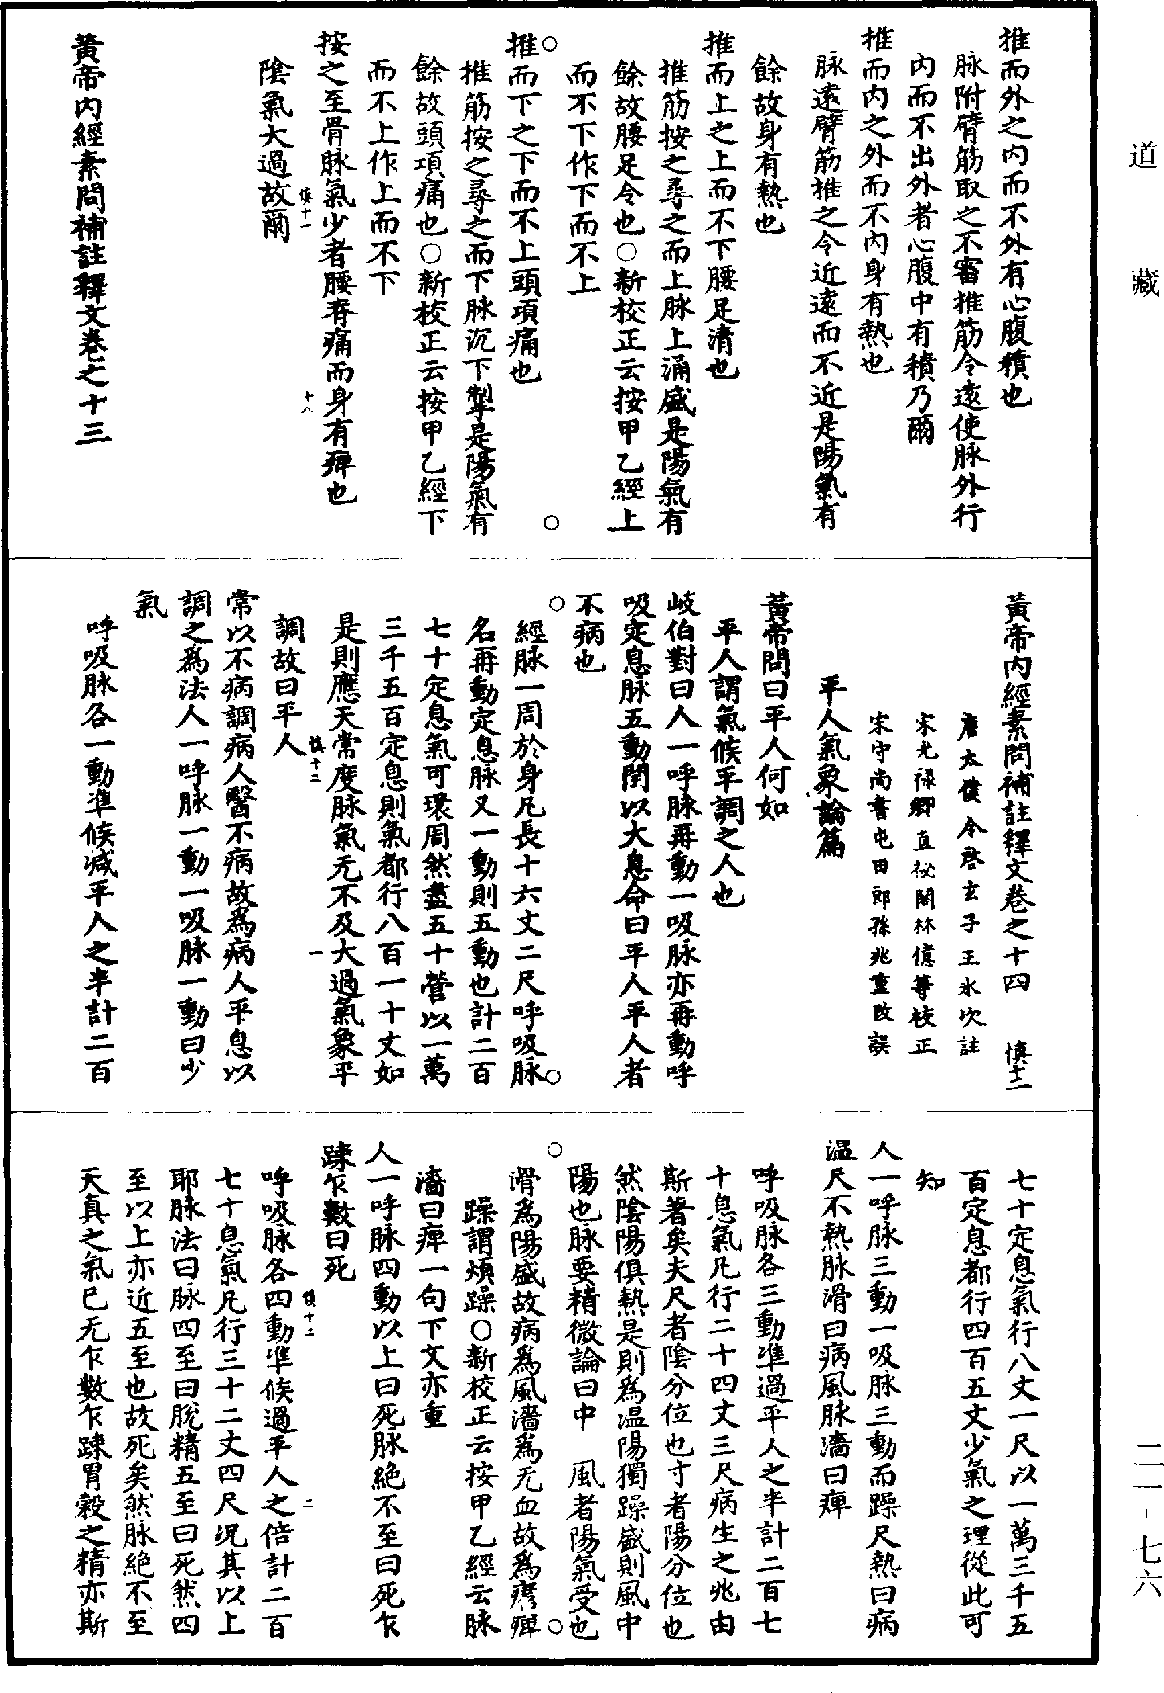 推而外之內而不外有心腹積也
脉附臂筋取之不審推筋令遠使脉外行
內而不出外者心腹中有積乃爾
推而內之外而不內身有熱也
脉遠臂筋推之令近遠而不近是陽氣有
餘故身有熱也
推而上之上而不下腰足清也
推筋按之尋之而上脉上涌盛是陽氣有
餘故腰足令也○新校正云按甲乙經上
而不下作下而不上
推而下之下而不上頭項痛也
推筋按之尋之而下脉沉下掣是陽氣有
餘故頭項痛也○新校正云按甲乙經下
而不上作上而不下
按之至骨脉氣少者腰脊痛而身有痺也
慎十一
十八
陰氣大過故爾
黃帝內經素問補註釋文卷之十三
黃帝內經素問補註釋文卷之十四 慎十二
唐太僕令啓玄子王冰次註
宋光祿卿直祕閣林億等校正
宋守尚書屯田郎孫兆重改誤
平人氣象論篇
黃帝問曰平人何如
平人謂氣候平調之人也
岐伯對曰人一呼脉再動一吸脉亦再動呼
吸定息脉五動閏以大息命曰平人平人者
不病也
經脉一周於身凡長十六丈二尺呼吸脉
名再動定息脉又一動則五動也計二百
七十定息氣可環周然盡五十營以一萬
三千五百定息則氣都行八百一十丈如
是則應天常度脉氣无不及大過氣象平
慎十二
一
調故曰平人
常以不病調病人醫不病故爲病人平息以
調之爲法人一呼脉一動一吸脉一動曰少
氣
呼吸脉各一動準候減平人之半計二百
七十定息氣行八丈一尺以一萬三千五
百定息都行四百五丈少氣之理從此可
知
人一呼脉三動一吸脉三動而躁尺熱曰病
温尺不熱脉滑曰病風脉濇曰痺
呼吸脉各三動準過平人之半計二百七
十息氣凡行二十四丈三尺病生之兆由
斯著矣夫尺者陰分位也寸者陽分位也
然陰陽俱熱是則爲温陽獨躁盛則風中
陽也脉要精微論曰中 風者陽氣受也
滑爲陽盛故病爲風濇爲无血故爲㾴痺
躁謂煩躁○新校正云按甲乙經云脉
濇曰痺一句下文亦重
人一呼脉四動以上曰死脉絶不至曰死乍
踈乍數曰死
呼吸脉各四動準候過平人之倍計二百
慎十二
二
七十息氣凡行三十二丈四尺况其以上
耶脉法曰脉四至曰脫精五至曰死然四
至以上亦近五至也故死矣然脉絶不至
天真之氣已无乍數乍踈胃榖之精亦斯
道藏
二一-七六